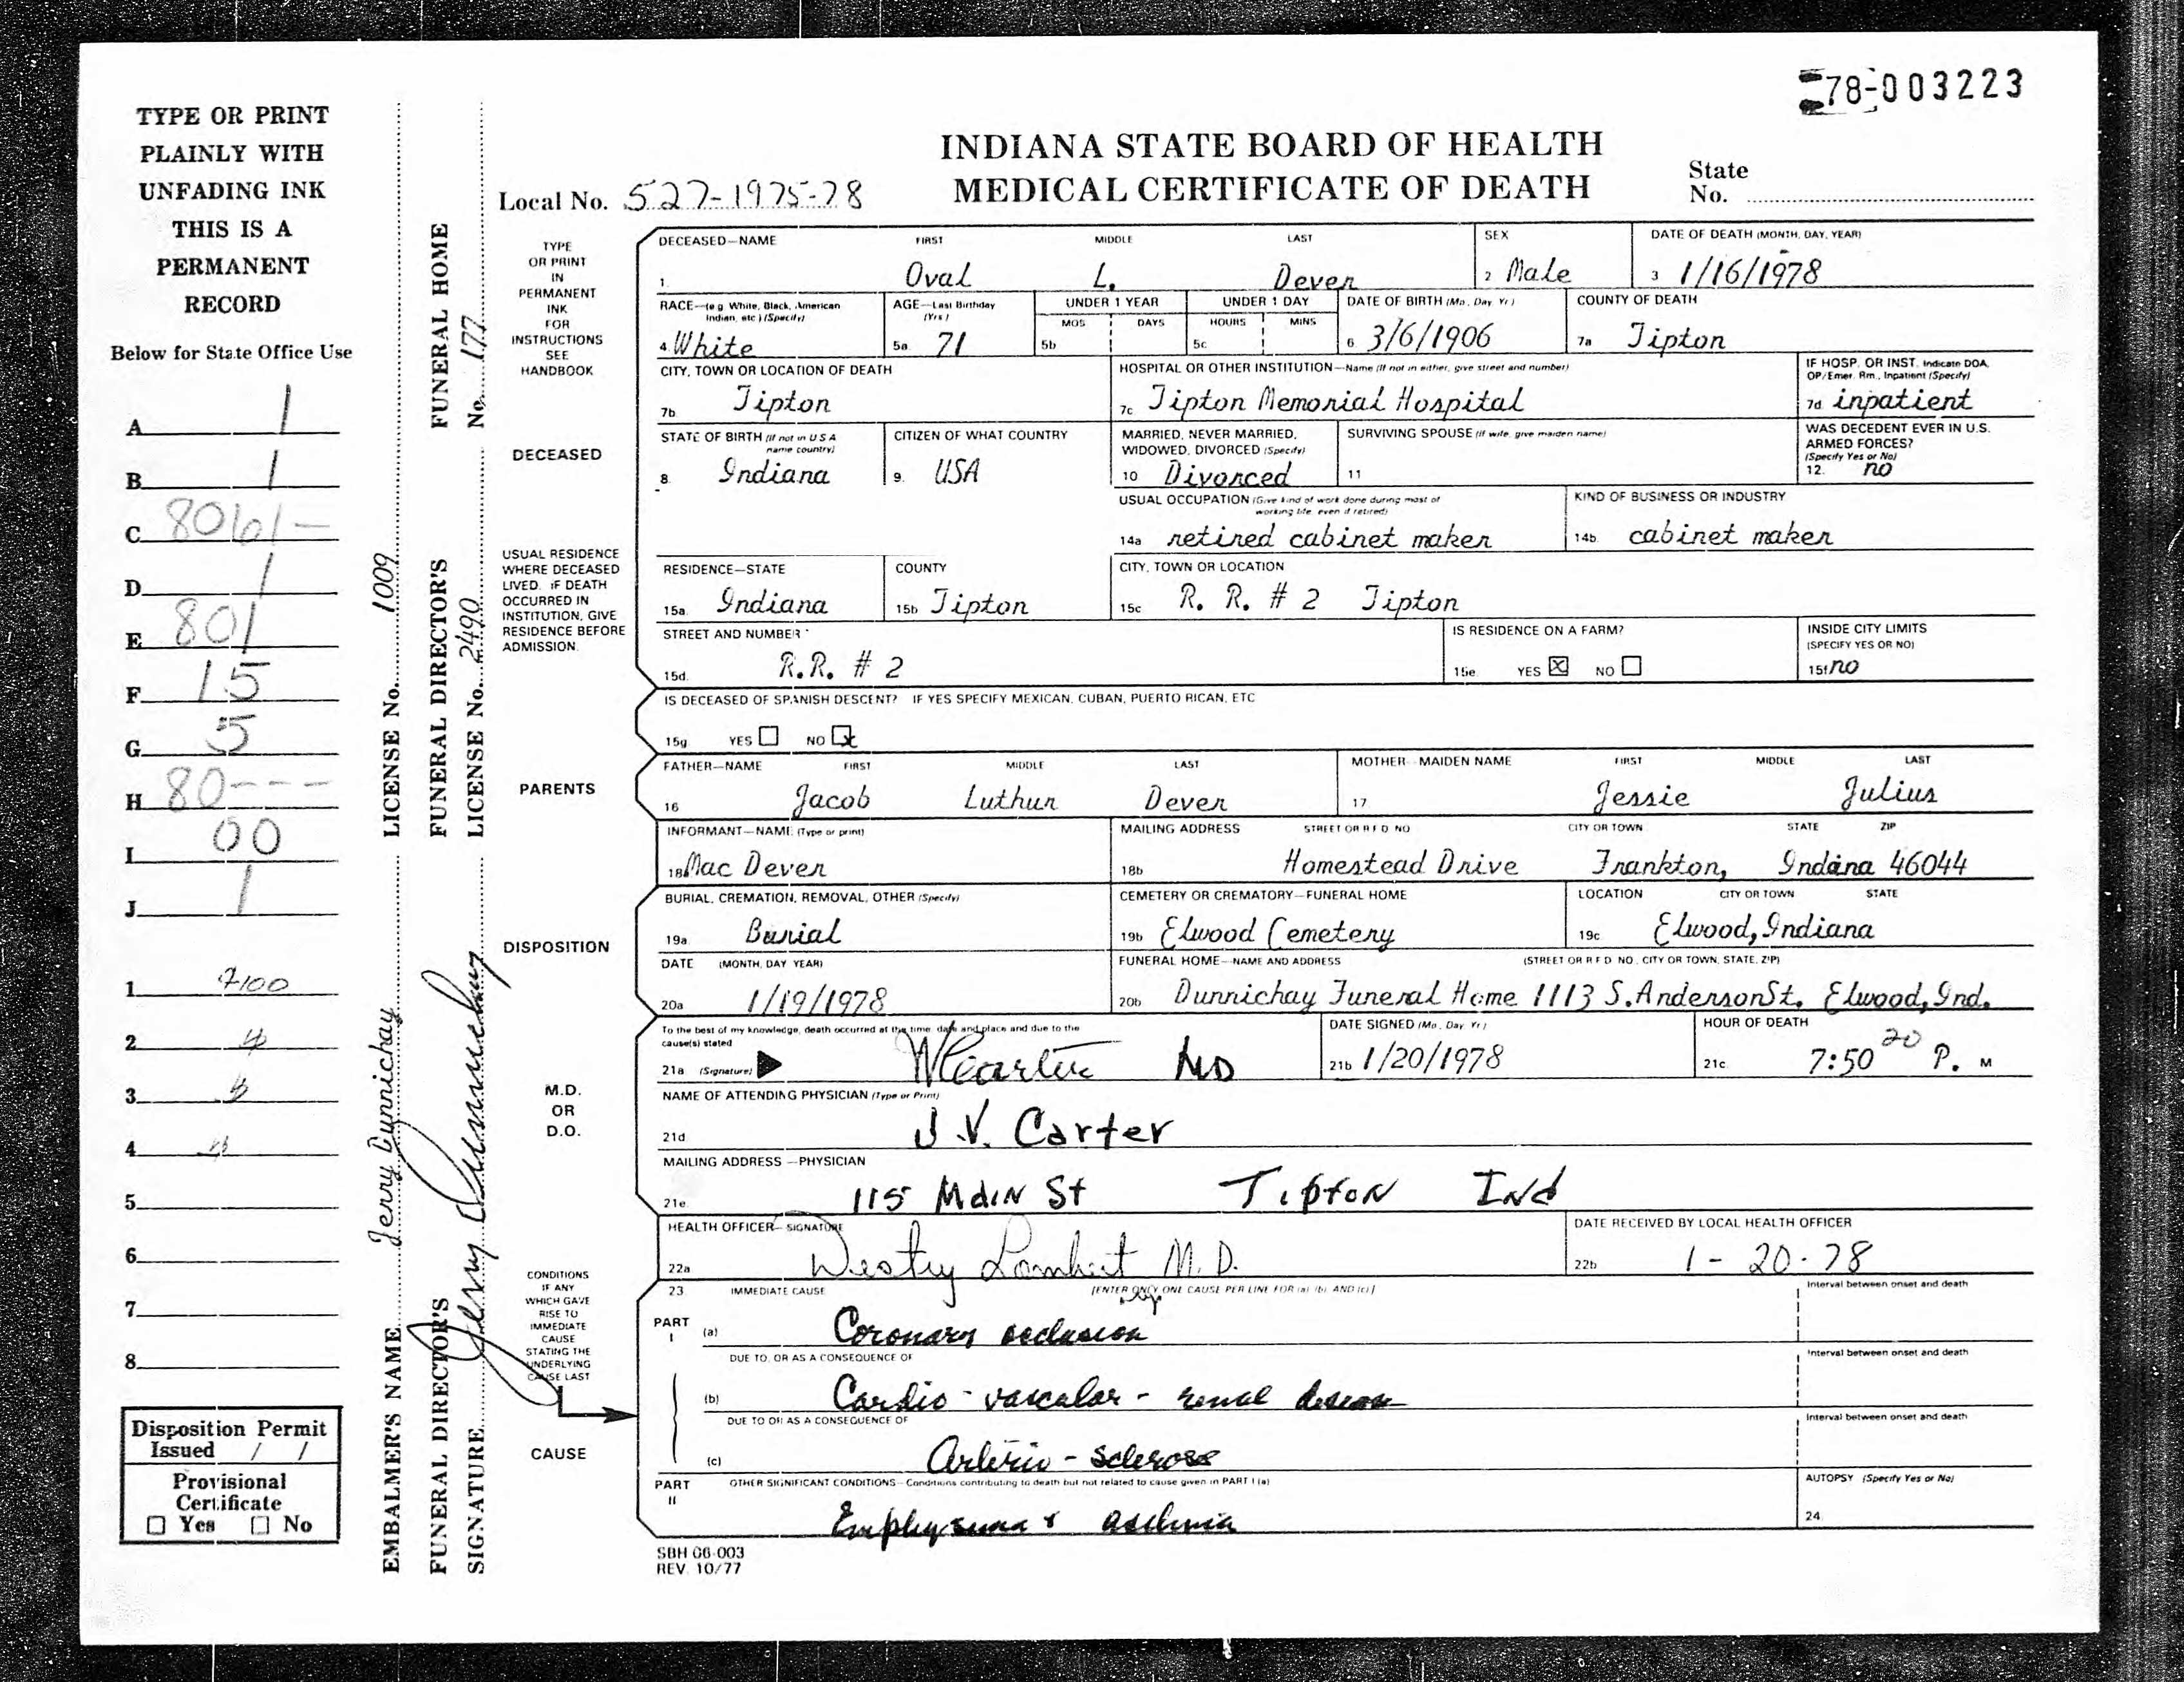 78-003223
INDIANA STATE BOARD OF HEALTH
MEDICAL CERTIFICATE OF DEATH
Local No. 527-1975-78
State No.
TYPE OR PRINT
PLAINLY WITH
UNFADING INK
THIS IS A
PERMANENT
RECORD
Below for State Office Use
A 1
B 1
C 8061-
D 1
E 801
F 15
G 5
H 80---
I 00
J 1
1
2
3
4
5
6
7
8
Disposition Permit
Issued / /
Provisional
Certificate
☐ Yes ☐ No
EMBALMER'S NAME Jerry Dunnichay LICENSE No. 1009
FUNERAL DIRECTOR'S FUNERAL DIRECTOR'S FUNERAL HOME
SIGNATURE Jerry Dunnichay LICENSE No. 2490 No. 177
TYPE
OR PRINT
IN
PERMANENT
INK
FOR
INSTRUCTIONS
SEE
HANDBOOK
DECEASED—NAME FIRST MIDDLE LAST SEX DATE OF DEATH (MONTH, DAY, YEAR)
1. Oval L. Dever 2 Male 3 1/16/1978
RACE—(e.g. White, Black, American Indian, etc.) (Specify) AGE—Last Birthday (Yrs.) UNDER 1 YEAR UNDER 1 DAY DATE OF BIRTH (Mo., Day, Yr.) COUNTY OF DEATH
MOS DAYS HOURS MINS
4. White 5a 71 5b 5c 6 3/6/1906 7a Tipton
CITY, TOWN OR LOCATION OF DEATH HOSPITAL OR OTHER INSTITUTION—Name (If not in either, give street and number) IF HOSP. OR INST. Indicate DOA, OP/Emer. Rm., Inpatient (Specify)
7b Tipton 7c Tipton Memorial Hospital 7d inpatient
DECEASED
STATE OF BIRTH (If not in U S A name country) CITIZEN OF WHAT COUNTRY MARRIED, NEVER MARRIED, WIDOWED, DIVORCED (Specify) SURVIVING SPOUSE (If wife, give maiden name) WAS DECEDENT EVER IN U.S. ARMED FORCES? (Specify Yes or No)
8. Indiana 9. USA 10 Divorced 11 12. no
USUAL OCCUPATION (Give kind of work done during most of working life, even if retired) KIND OF BUSINESS OR INDUSTRY
14a retired cabinet maker 14b. cabinet maker
USUAL RESIDENCE
WHERE DECEASED
LIVED. IF DEATH
OCCURRED IN
INSTITUTION, GIVE
RESIDENCE BEFORE
ADMISSION.
RESIDENCE—STATE COUNTY CITY, TOWN OR LOCATION
15a. Indiana 15b Tipton 15c R. R. # 2 Tipton
STREET AND NUMBER IS RESIDENCE ON A FARM? INSIDE CITY LIMITS (SPECIFY YES OR NO)
15d. R.R. # 2 15e. YES ☒ NO ☐ 15f no
IS DECEASED OF SPANISH DESCENT? IF YES SPECIFY MEXICAN, CUBAN, PUERTO RICAN, ETC
15g YES ☐ NO ☒
PARENTS
FATHER—NAME FIRST MIDDLE LAST MOTHER—MAIDEN NAME FIRST MIDDLE LAST
16 Jacob Luthur Dever 17 Jessie Julius
INFORMANT—NAME (Type or print) MAILING ADDRESS STREET OR R F D NO CITY OR TOWN STATE ZIP
18a Mac Dever 18b Homestead Drive Frankton, Indana 46044
BURIAL, CREMATION, REMOVAL, OTHER (Specify) CEMETERY OR CREMATORY—FUNERAL HOME LOCATION CITY OR TOWN STATE
DISPOSITION
19a Burial 19b Elwood Cemetery 19c Elwood, Indiana
DATE (MONTH, DAY, YEAR) FUNERAL HOME—NAME AND ADDRESS (STREET OR R F D NO., CITY OR TOWN, STATE, ZIP)
20a 1/19/1978 20b Dunnichay Funeral Home 1113 S. Anderson St. Elwood, Ind.
To the best of my knowledge, death occurred at the time, date and place and due to the cause(s) stated DATE SIGNED (Mo., Day, Yr.) HOUR OF DEATH
21a (Signature) Carter MD 21b 1/20/1978 21c 7:50 20 P. M
M.D.
OR
D.O.
NAME OF ATTENDING PHYSICIAN (Type or Print)
21d J.V. Carter
MAILING ADDRESS—PHYSICIAN
21e 115 Main St Tipton Ind
HEALTH OFFICER—SIGNATURE DATE RECEIVED BY LOCAL HEALTH OFFICER
22a Lambert M.D. 22b 1-20-78
CONDITIONS
IF ANY
WHICH GAVE
RISE TO
IMMEDIATE
CAUSE
STATING THE
UNDERLYING
CAUSE LAST
CAUSE
23 IMMEDIATE CAUSE [ENTER ONLY ONE CAUSE PER LINE FOR (a), (b), AND (c)] Interval between onset and death
PART I (a) Coronary occlusion
DUE TO, OR AS A CONSEQUENCE OF Interval between onset and death
(b) Cardio-vascular-renal disease
DUE TO OR AS A CONSEQUENCE OF Interval between onset and death
(c) Arterio-sclerosis
PART II OTHER SIGNIFICANT CONDITIONS—Conditions contributing to death but not related to cause given in PART I (a) AUTOPSY (Specify Yes or No)
Emphysema & asthma 24.
SBH 06-003
REV. 10/77